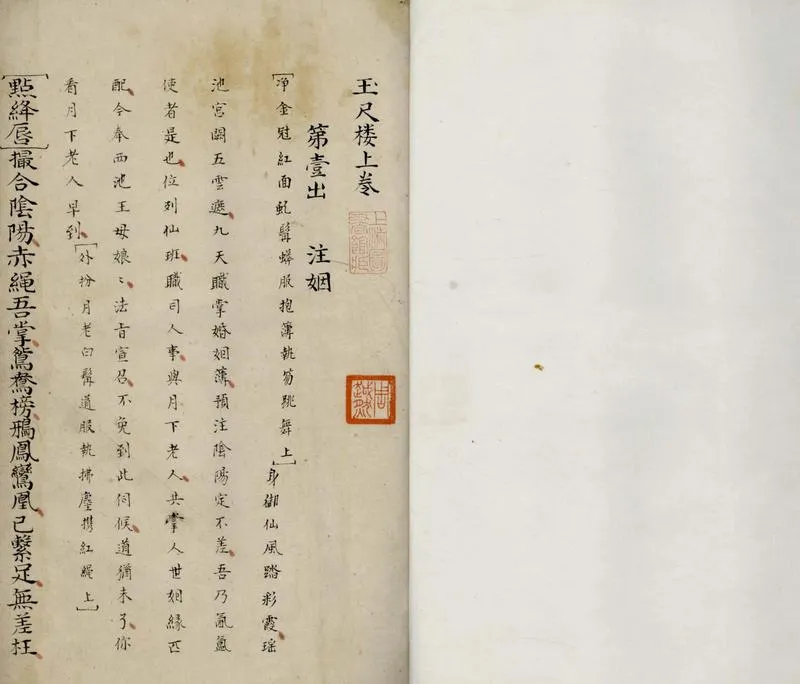 玉尺楼上卷
第壹出 注姻
[净金冠紅面虬髯蟒服抱簿執笏跳舞上]身御仙風踏彩霞瑤
池宮闕五雲遮九天職掌婚姻簿預注陰陽定不差吾乃氤氳
使者是也位列仙班職司人事與月下老人共掌人世姻緣匹
配今奉西池王母娘〻法旨宣召不免到此伺候道猶未了你
看月下老人早到[外扮月老白髯道服執拂塵携紅縄上]
[點絳唇]撮合陰陽赤繩吾掌鴛鴦榜鴉鳳鸞凰已繫足無差枉
周越然